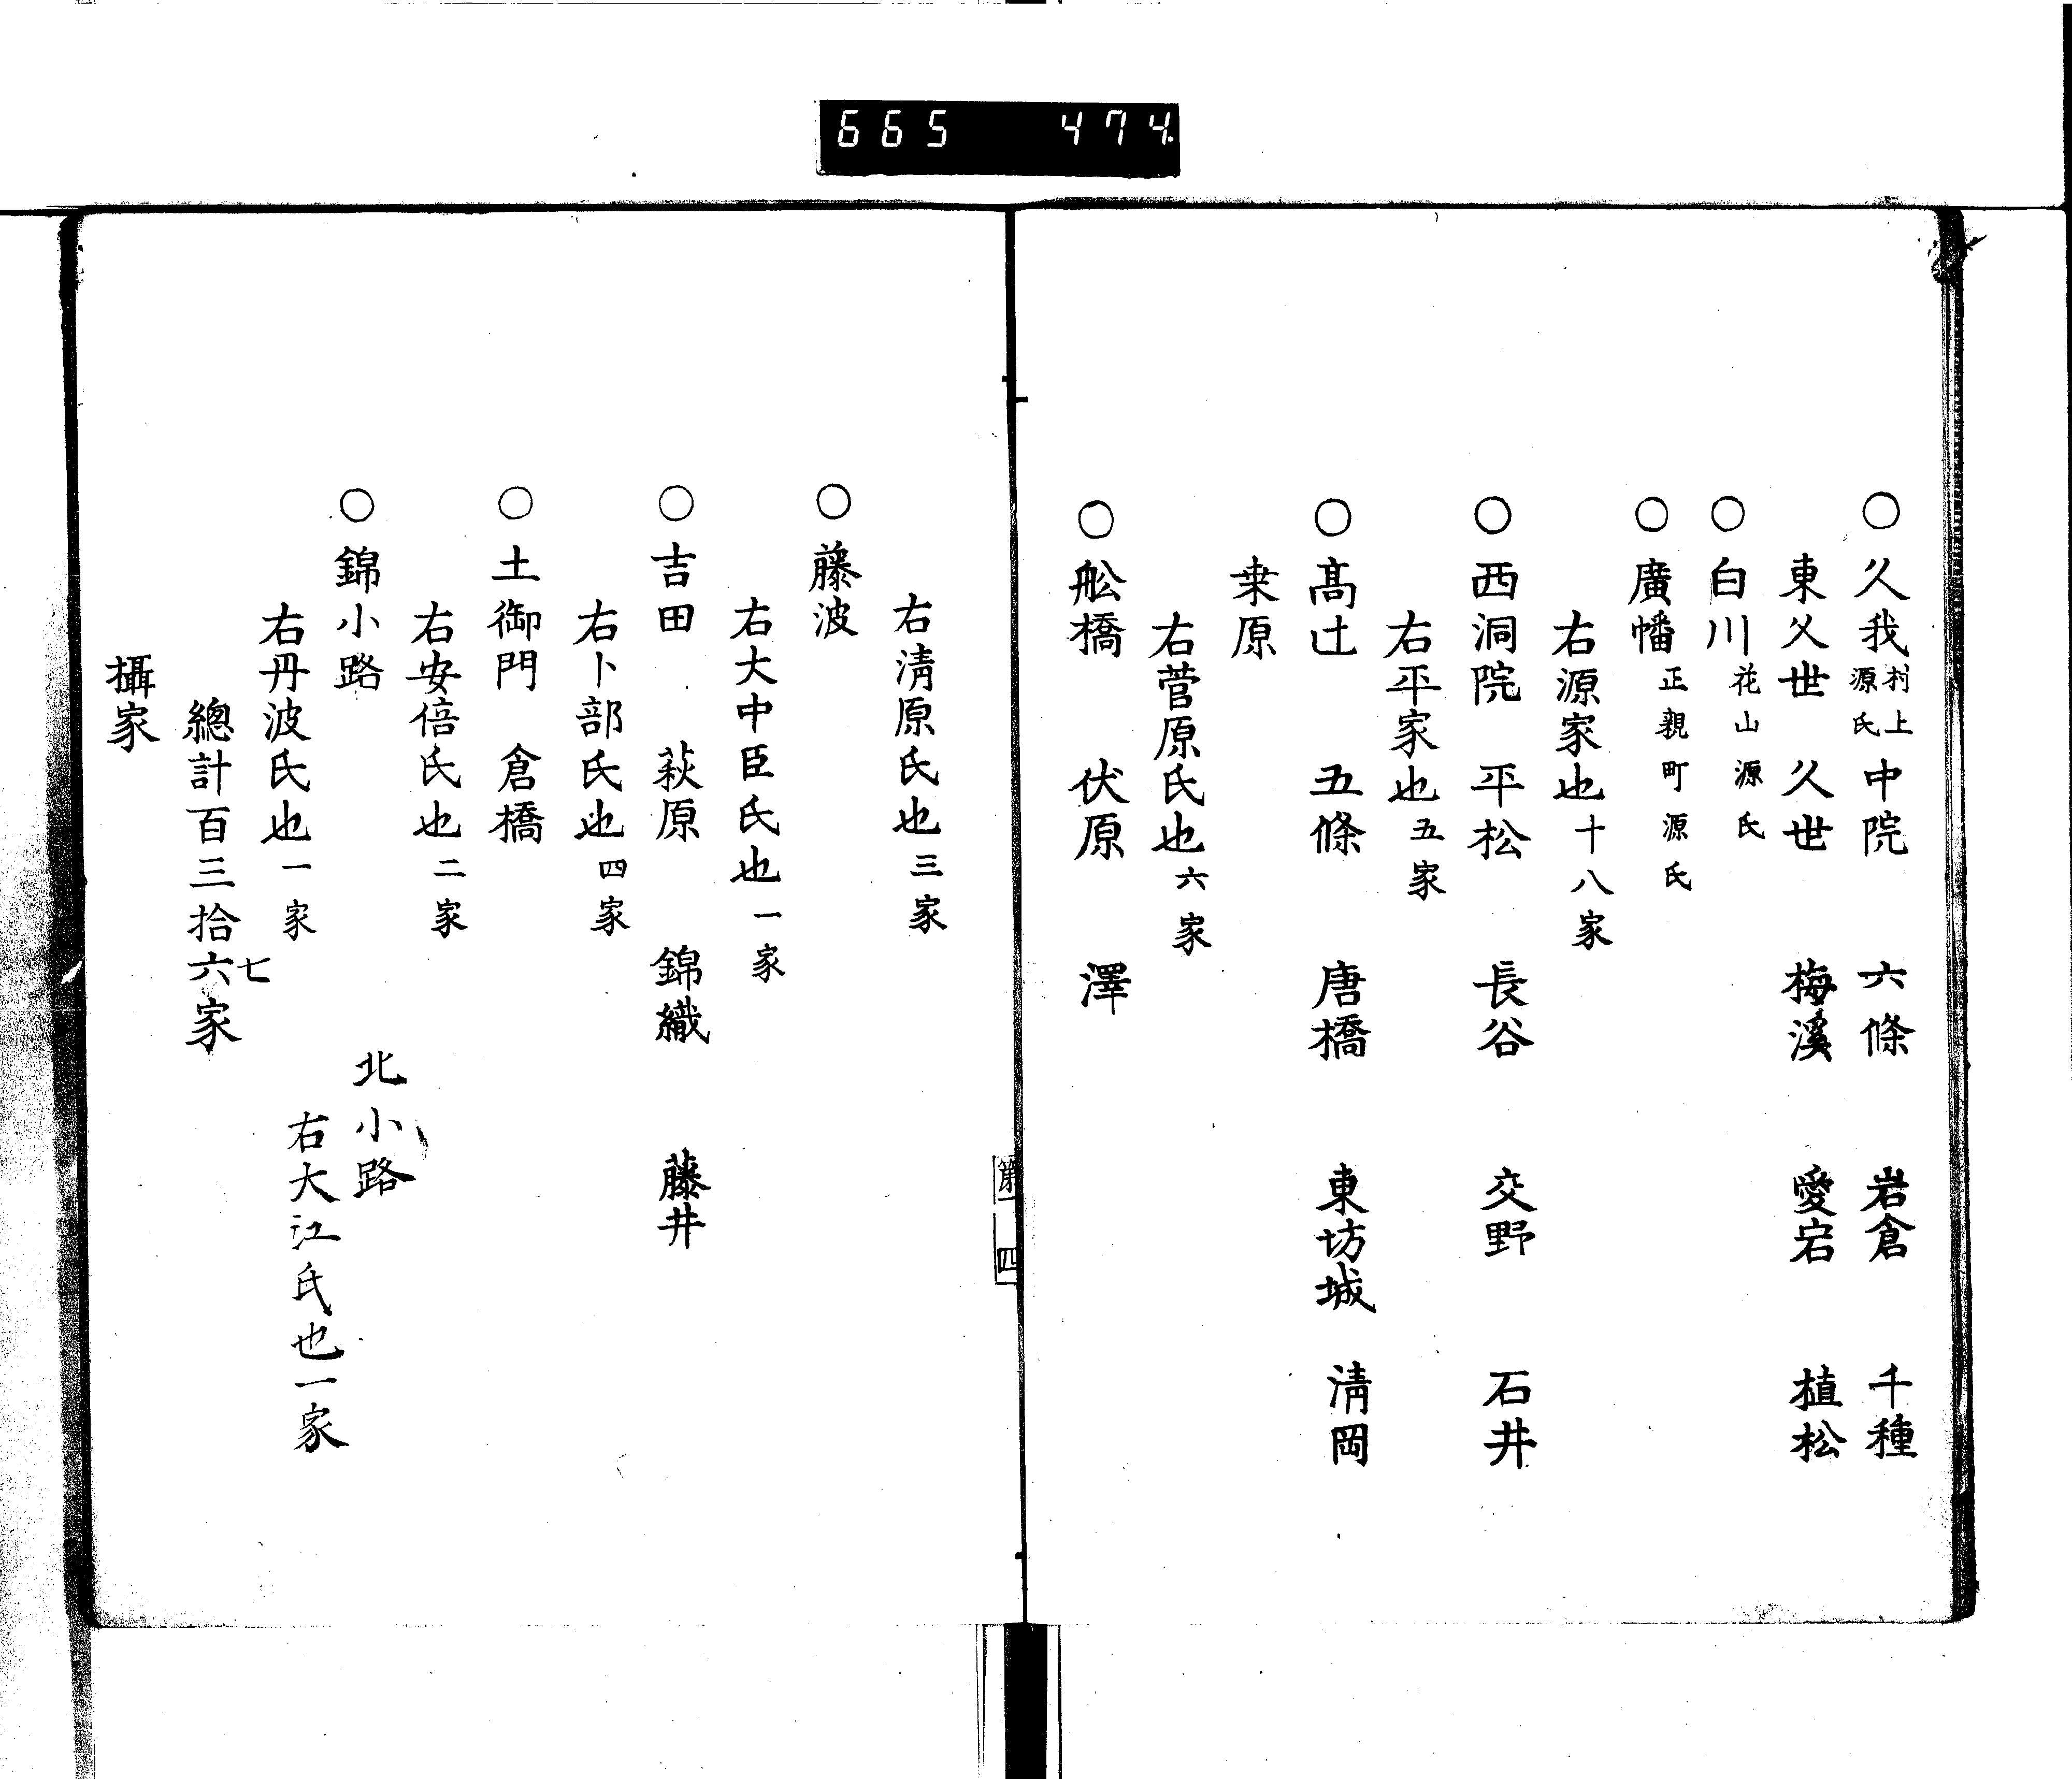 665 474
○久我村上源氏 中院 六條 岩倉 千種
東久世 久世 梅溪 愛宕 植松
○白川花山源氏
○廣幡正親町源氏
右源家也十八家
○西洞院 平松 長谷 交野 石井
右平家也五家
○髙辻 五條 唐橋 東坊城 淸岡
桒原
右菅原氏也六家
○舩橋 伏原 澤
第一 四
右淸原氏也三家
○藤波
右大中臣氏也一家
○吉田 萩原 錦織 藤井
右卜部氏也四家
○土御門 倉橋
右安倍氏也二家
○錦小路
北小路
右丹波氏也一家
右大江氏也一家
總計百三拾六家
七
攝家